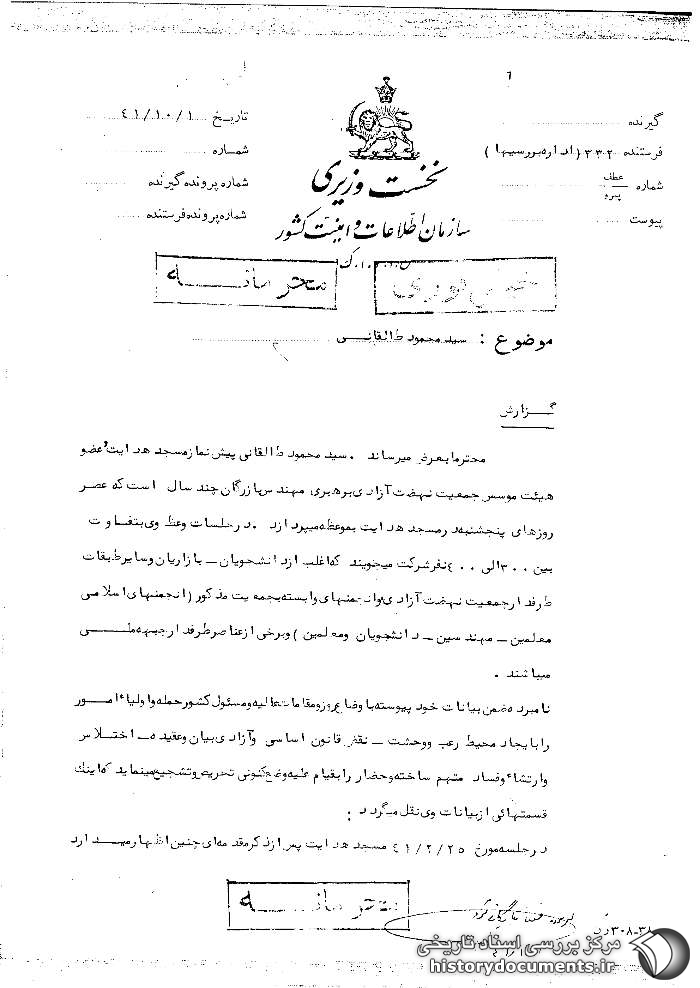 گیرنده
فرستنده ۳۳۲ (اداره بررسیها)
شماره عطف پیرو
پیوست
نخست وزیری
سازمان اطلاعات و امنیت کشور
تاریخ ۴۱/۱۰/۱
شماره
شماره پرونده گیرنده
شماره پرونده فرستنده
محرمانه
موضوع : سید محمود طالقانی
گزارش
محترما بعرض میرساند . سید محمود طالقانی پیش نماز مسجد هدایت و عضو
هیئت موسس جمعیت نهضت آزادی برهبری مهندس بازرگان چند سال است که عصر
روزهای پنجشنبه در مسجد هدایت بموعظه میپردازد . در جلسات وعظ وی بتفاوت
بین ۳۰۰ الی ۴۰۰ نفر شرکت میجویند که اغلب از دانشجویان ـ بازاریان و سایر طبقات
طرفدار جمعیت نهضت آزادی و انجمنهای وابسته بجمعیت مذکور (انجمنهای اسلامی
معلمین ـ مهندسین ـ دانشجویان و معلمین ) و برخی از عناصر طرفدار جبهه ملی
میباشند .
نامبرده ضمن بیانات خود پیوسته باوضاع روز و مقامات عالیه و مسئول کشور حمله و اولیاء امور
را بایجاد محیط رعب و وحشت ـ نقض قانون اساسی و آزادی بیان و عقیده ـ اختلاس
و ارتشاء و فساد متهم ساخته و حضار را بقیام علیه وضع کنونی تحریص و تشجیع مینماید که اینک
قسمتهائی از بیانات وی نقل میگردد :
در جلسه مورخ ۴۱/۲/۲۵ مسجد هدایت پس از ذکر مقدمه‌ای چنین اظهار میدارد
محرمانه
۳۰۸-۳۸
مرکز بررسی اسناد تاریخی
historydocuments.ir